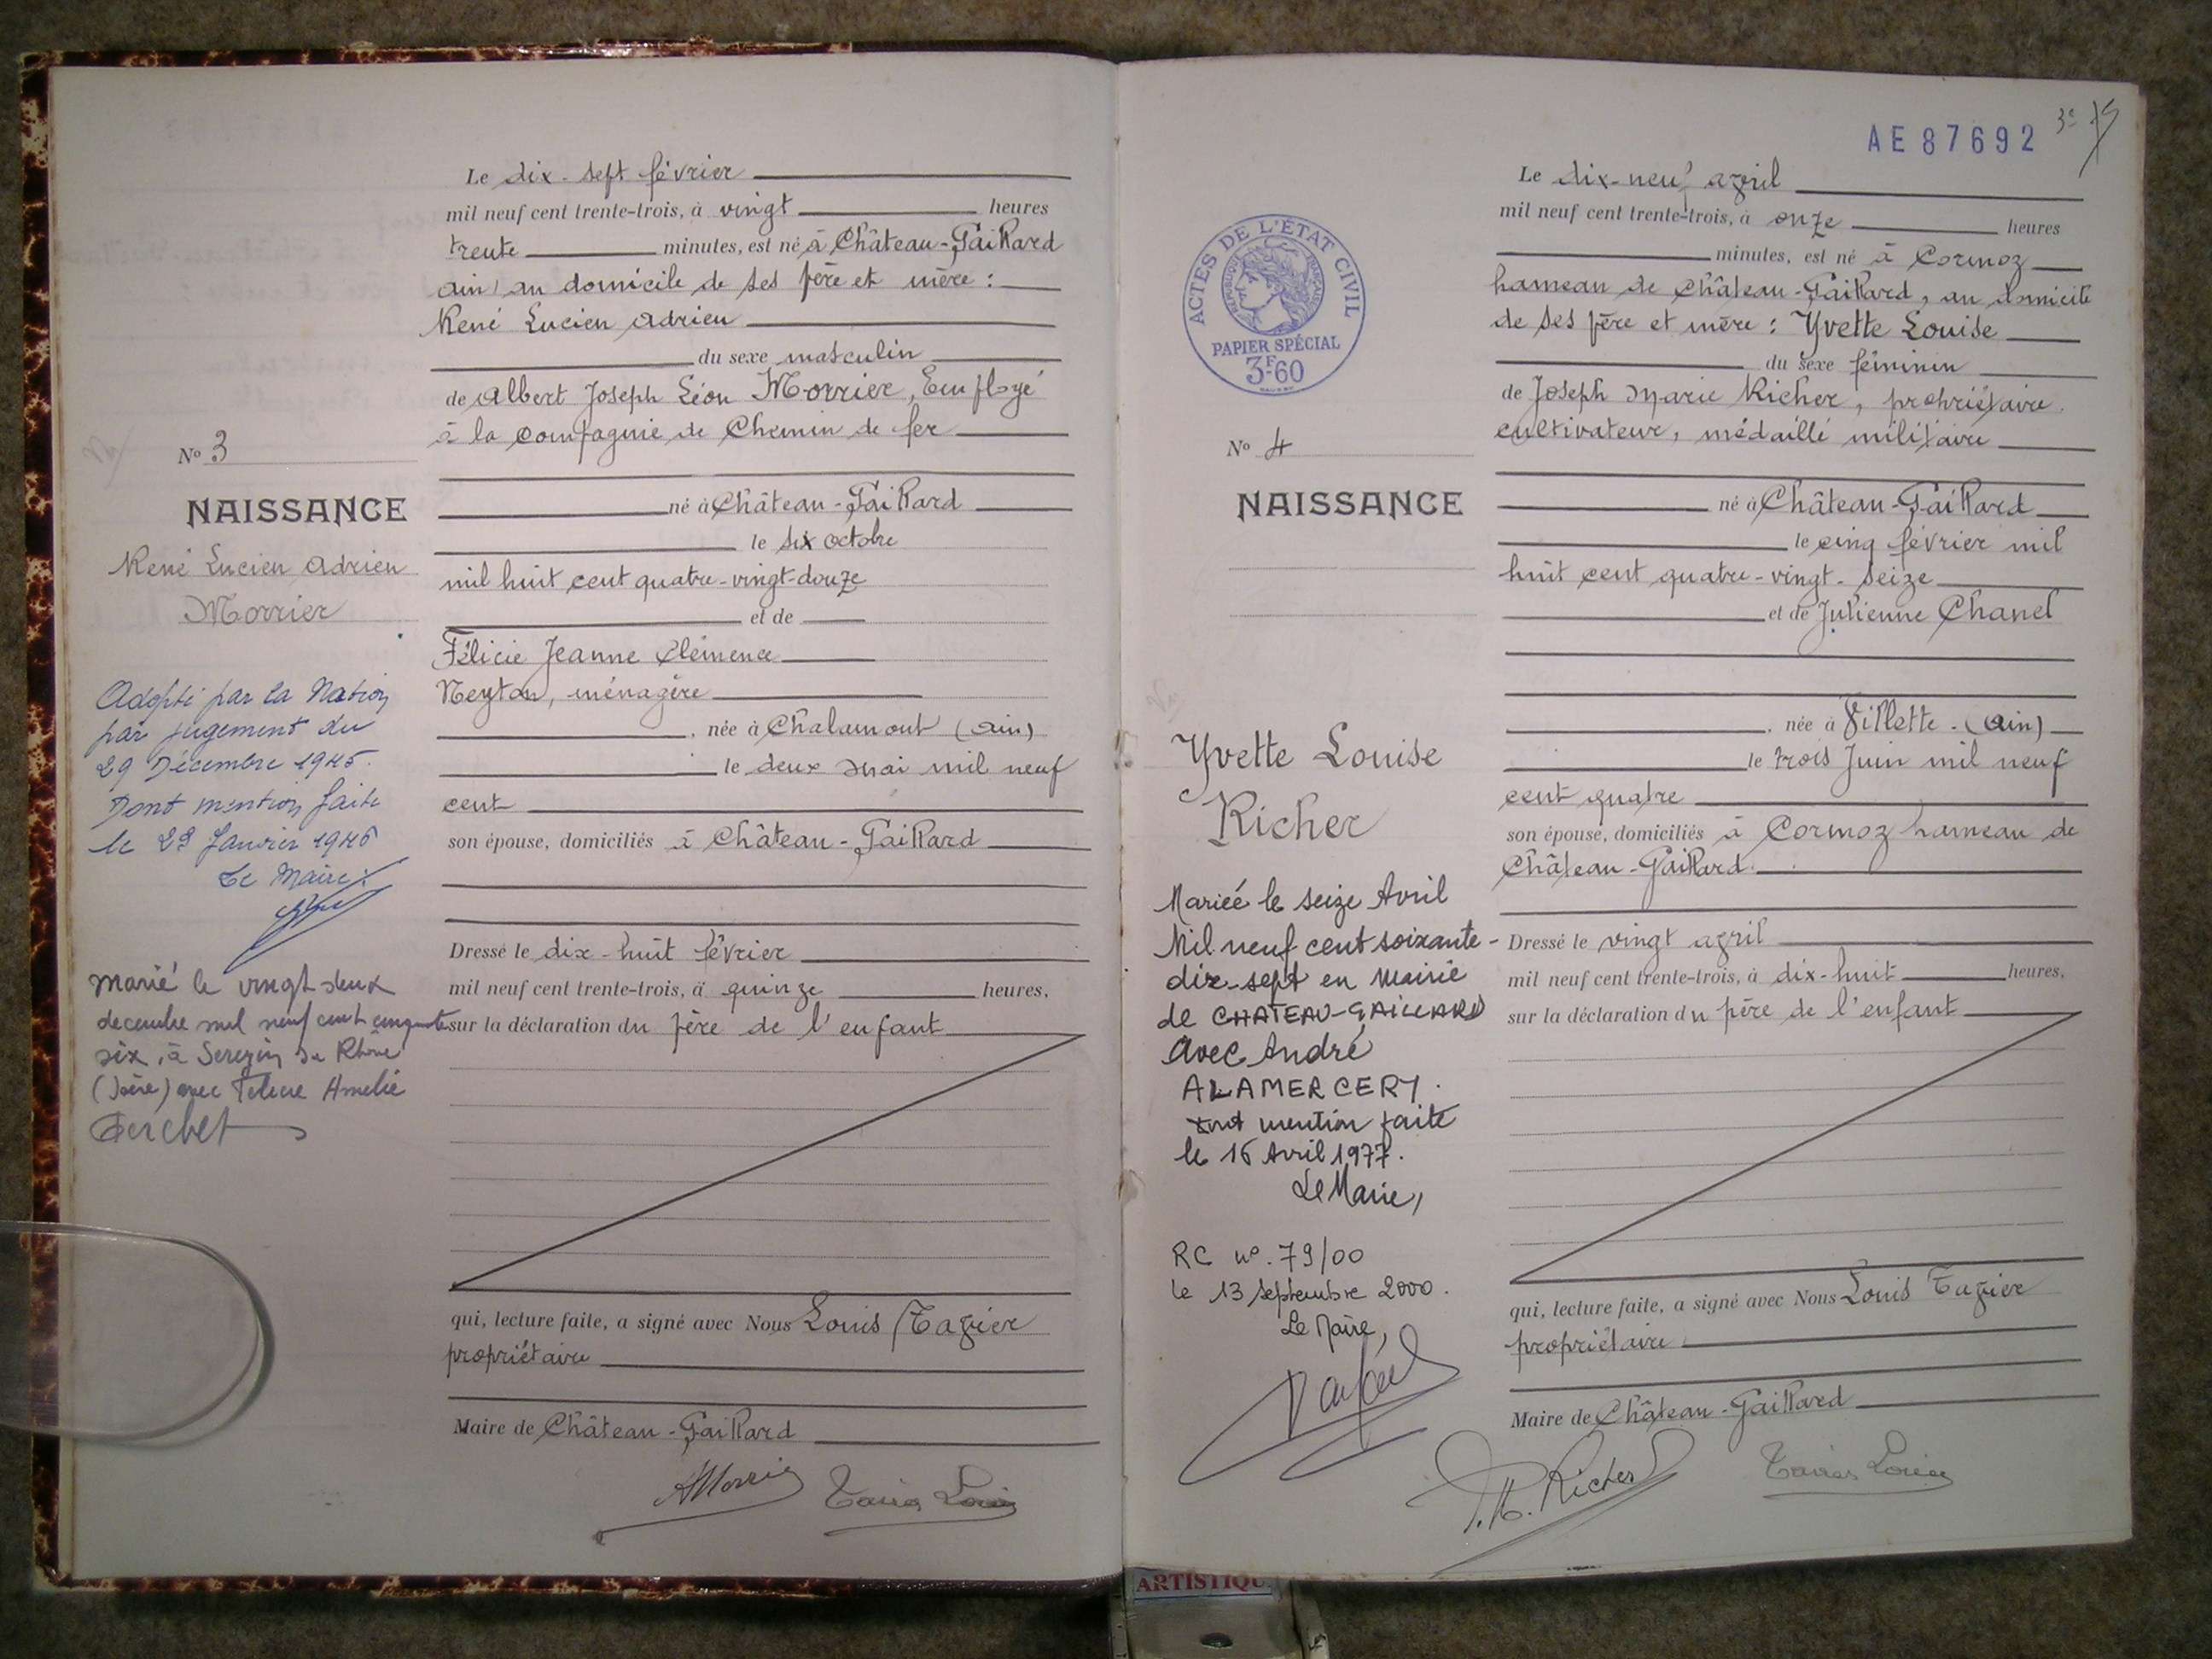 Le dix-sept février
mil neuf cent trente-trois, à vingt heures
trente minutes, est né à Château-Gaillard
ain) au domicile de ses père et mère :
René Lucien Adrien
du sexe masculin
de Albert Joseph Léon Morrier, Employé
à la compagnie de Chemin de fer
né à Château-Gaillard
le six octobre
mil huit cent quatre-vingt-douze
et de
Félicie Jeanne Clémence
Neyton, ménagère
, née à Chalamont (ain)
le deux mai mil neuf
cent
son épouse, domiciliés à Château-Gaillard
Dressé le dix-huit février
mil neuf cent trente-trois, à quinze heures,
sur la déclaration du père de l'enfant
qui, lecture faite, a signé avec Nous Louis Tavier
propriétaire
Maire de Château-Gaillard
AMorrier Tavier Louis
No 3
NAISSANCE
René Lucien Adrien
Morrier
Adopté par la Nation
par jugement du
29 Décembre 1945.
Dont mention faite
le 29 Janvier 1946
Le Maire :
Marié le vingt deux
decembre mil neuf cent cinquante
six, à Serezin du Rhône
(Isère) avec Amelie
AE 87692
Le dix-neuf avril
mil neuf cent trente-trois, à onze heures
minutes, est né à Cormoz
hameau de Château-Gaillard, au domicile
de ses père et mère : Yvette Louise
du sexe féminin
de Joseph Marie Richer, propriétaire
cultivateur, médaillé militaire
né à Château-Gaillard
le cinq février mil
huit cent quatre-vingt-seize
et de Julienne Chanel
, née à Villette-(ain)
le trois Juin mil neuf
cent quatre
son épouse, domiciliés à Cormoz hameau de
Château-Gaillard.
Dressé le vingt avril
mil neuf cent trente-trois, à dix-huit heures,
sur la déclaration du père de l'enfant
qui, lecture faite, a signé avec Nous Louis Tavier
propriétaire
Maire de Château-Gaillard
J.M. Richer Tavier Louis
ACTES DE L'ÉTAT CIVIL
RÉPUBLIQUE FRANÇAISE
PAPIER SPÉCIAL
3F60
No 4
NAISSANCE
Yvette Louise
Richer
Mariée le seize Avril
Mil neuf cent soixante-
dix-sept en Mairie
de CHATEAU-GAILLARD
Avec André
ALAMERCERY.
dont mention faite
le 16 Avril 1977.
Le Marie,
RC no. 79/00
le 13 septembre 2000.
Le Maire,
ARTISTIQU